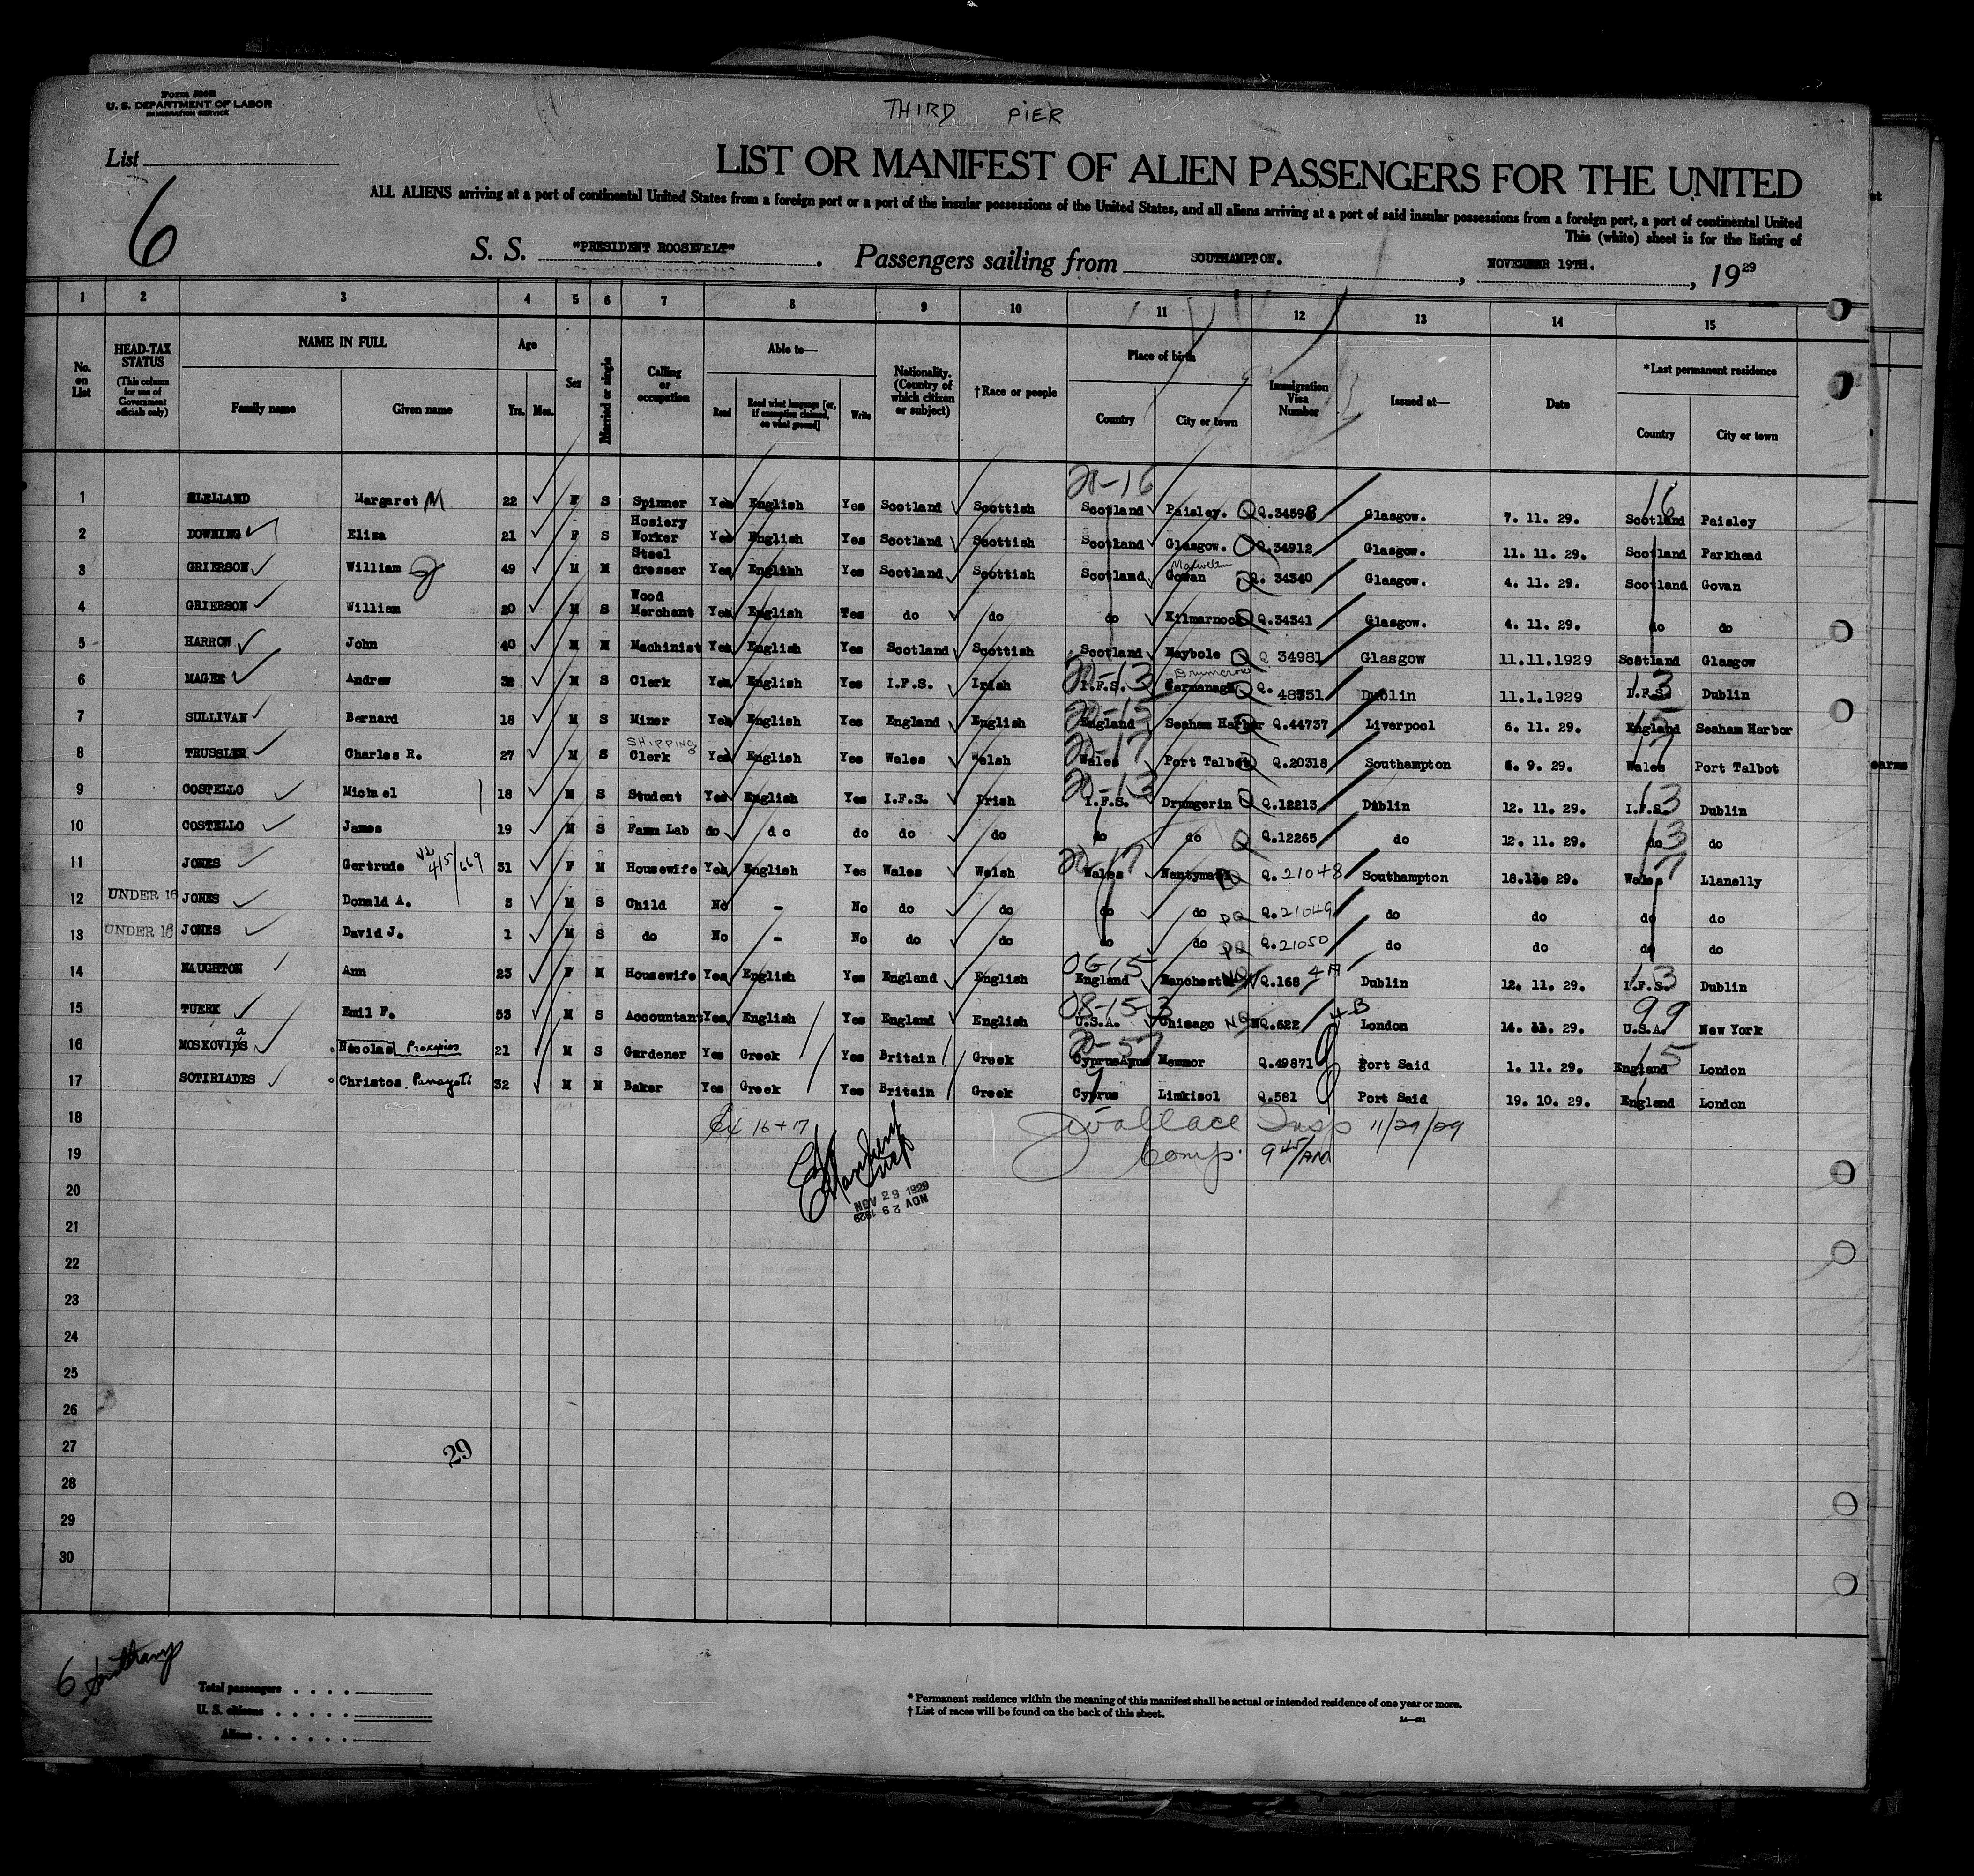 Form 500B
U. S. DEPARTMENT OF LABOR
IMMIGRATION SERVICE
THIRD PIER
List
6
LIST OR MANIFEST OF ALIEN PASSENGERS FOR THE UNITED
ALL ALIENS arriving at a port of continental United States from a foreign port or a port of the insular possessions of the United States, and all aliens arriving at a port of said insular possessions from a foreign port, a port of continental United
This (white) sheet is for the listing of
S. S. "PRESIDENT ROOSEVELT". Passengers sailing from SOUTHAMPTON. , NOVEMBER 19TH. , 1929
1 2 3 4 5 6 7 8 9 10 11 12 13 14 15
No. on List
HEAD-TAX STATUS (This column for use of Government officials only)
NAME IN FULL
Family name Given name
Age
Yrs. Mos.
Sex
Married or single
Calling or occupation
Able to—
Read Read what language [or, if exemption claimed, on what ground] Write
Nationality. (Country of which citizen or subject)
†Race or people
Place of birth
Country City or town
Immigration Visa Number
Issued at—
Date
*Last permanent residence
Country City or town
28-16 16
1 Margaret M 22 F S Spinner Yes English Yes Scotland Scottish Scotland Paisley. Q Q.34598 Glasgow. 7. 11. 29. Scotland Paisley
2 DOWNING Eliza 21 F S Hosiery Worker Yes English Yes Scotland Scottish Scotland Glasgow. Q Q.34912 Glasgow. 11. 11. 29. Scotland Parkhead
3 GRIERSON William 49 M M Steel dresser Yes English Yes Scotland Scottish Scotland Govan Q Q. 34340 Glasgow. 4. 11. 29. Scotland Govan
4 GRIERSON William 20 M S Wood Merchant Yes English Yes do do do Kilmarnock Q Q.34341 Glasgow. 4. 11. 29. do do
5 HARROW John 40 M M Machinist Yes English Yes Scotland Scottish Scotland Maybole Q Q 34981 Glasgow 11.11.1929 Scotland Glasgow
6 MAGEE Andrew 32 M S Clerk Yes English Yes I.F.S. Irish I.F.S. Fermanagh Q Q. 48751 Dublin 11.1.1929 I.F.S. Dublin
7 SULLIVAN Bernard 18 M S Miner Yes English Yes England English England Seaham Harbor Q.44737 Liverpool 6. 11. 29. England Seaham Harbor
8 TRUSSLER Charles R. 27 M S SHIPPING Clerk Yes English Yes Wales Welsh Wales Port Talbot Q Q.20318 Southampton 6. 9. 29. Wales Port Talbot
9 COSTELLO Michael 18 M S Student Yes English Yes I.F.S. Irish I.F.S. Drumgerin Q Q.12213 Dublin 12. 11. 29. I.F.S. Dublin
10 COSTELLO James 19 M S Farm Lab do do do do do do do Q Q.12265 do 12. 11. 29. do do
11 JONES Gertrude 415/669 31 F M Housewife Yes English Yes Wales Welsh Wales Q. 21048 Southampton 29. Wales Llanelly
12 UNDER 16 JONES Donald A. 3 M S Child No - No do do do do PQ Q.21049 do do do do
13 UNDER 16 JONES David J. 1 M S do No - No do do do do PQ Q.21050 do do do do
14 NAUGHTON Ann 23 F M Housewife Yes English Yes England English England Manchester NQ Q.168 4A Dublin 12. 11. 29. I.F.S. Dublin
15 TUERK Emil F. 53 M S Accountant Yes English Yes England English U.S.A. Chicago NQ NQ.622 4-B London 14. 11. 29. U.S.A. New York
16 MOSKOVIDS a Nicolas Prokopios 21 M S Gardener Yes Greek Yes Britain Greek Cyprus Q.49871 Port Said 1. 11. 29. England London
17 SOTIRIADES Christos. Panayoti 32 M M Baker Yes Greek Yes Britain Greek Cyprus Limkisol Q.581 Port Said 19. 10. 29. England London
18 16 + 17 Wallace Insp 11/29/29
19 Comp. 9 45/AM
NOV 29 1929
NOV 29 1929
20
21
22
23
24
25
26
27
29
28
29
30
6
Total passengers
U. S. citizens
Aliens
* Permanent residence within the meaning of this manifest shall be actual or intended residence of one year or more.
† List of races will be found on the back of this sheet.